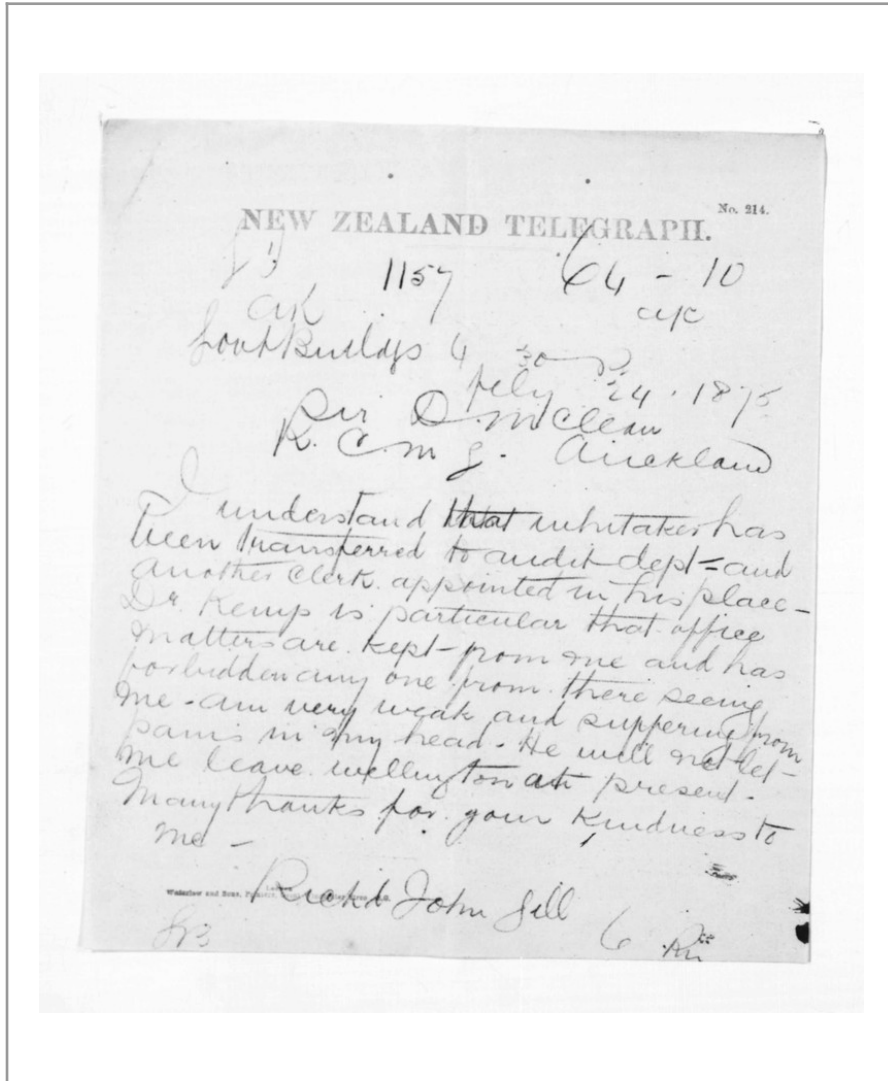 No. 214.
NEW ZEALAND TELEGRAPH.
1157 64 - 10
Govt Buildgs 4 30
July 24. 1875
Sir D. McClean
K. C. M G. Auckland
I understand that Whitaker has
been transferred to audit dept = and
another clerk appointed in his place -
Dr. Kemp is particular that office
matters are kept from me and has
forbidden any one from there seeing
me - am very weak and suffering from
pains in my head - He will not let
me leave Wellington at present -
Many thanks for your Kindness to
me -
Waterlow and Sons,
Richd John Gill
6